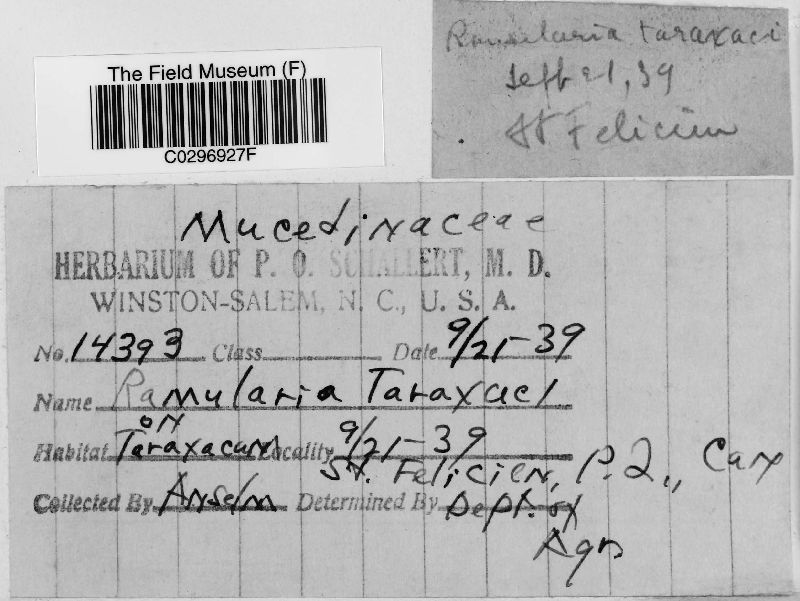 The Field Museum (F)
C0296927F
Ramularia taraxaci
Sept 21, 39
St Felicien
Mucedinaceae
HERBARIUM OF P. O. SCHALLERT, M. D.
WINSTON-SALEM, N. C., U. S. A.
No. 14393 Class Date 9/21-39
Name Ramularia Taraxaci
on
Habitat Taraxacum Locality 9/21-39
St. Felicien, P.Q., Can
Collected By Anselm Determined By Dept. of
Agr.